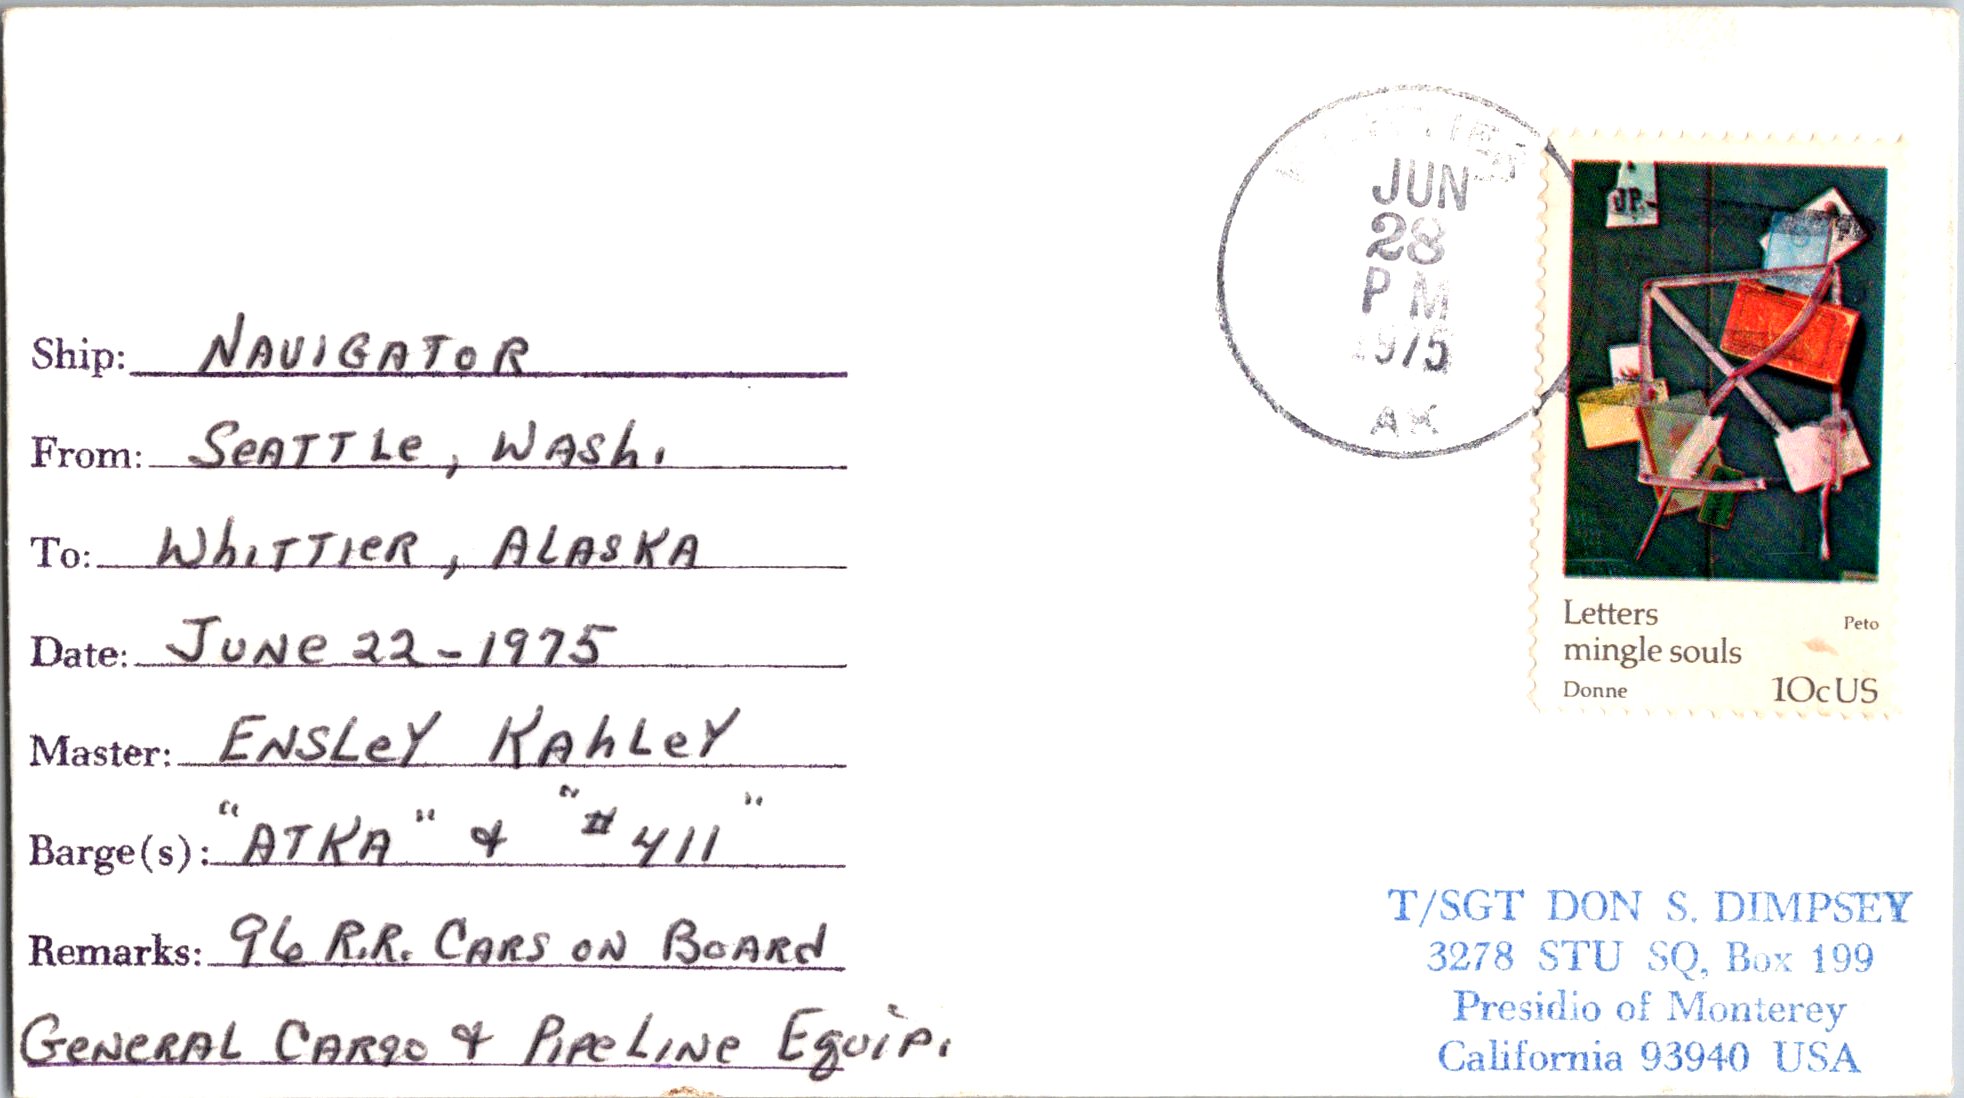 Ship: NAVIGATOR
From: SeATTLe, WASh.
To: WhITTIeR, ALASKA
Date: JUNe 22-1975
Master: ENSLeY KAhLeY
Barge(s): "ATKA" & "#411"
Remarks: 96 R.R. CARS ON BOARd
GeNeRAL CARgo & PIPeLINe EquiP.
JUN
28
PM
1975
AK
JP.
Letters
mingle souls
Peto
Donne
10c US
T/SGT DON S. DIMPSEY
3278 STU SQ, Box 199
Presidio of Monterey
California 93940 USA